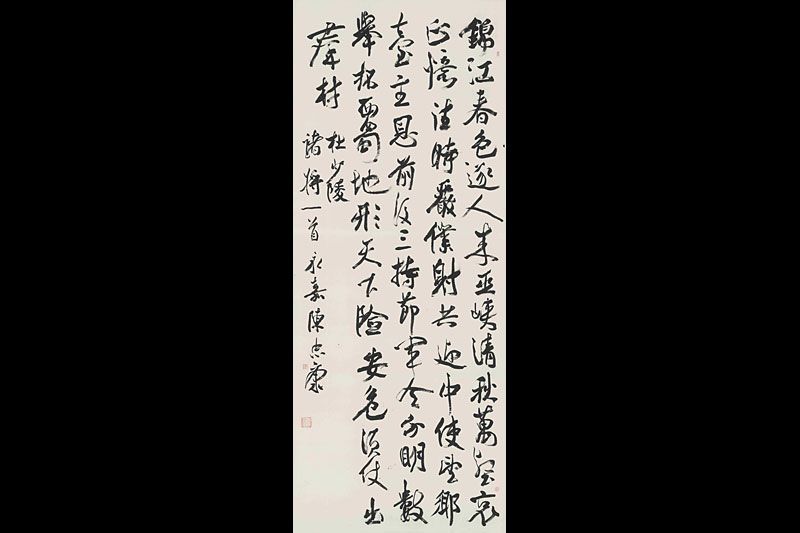 錦江春色逐人来巫峽清秋萬壑哀
正憶往時嚴僕射共迎中使望鄉
臺主恩前後三持節軍令分明數
舉杯西蜀地形天下險安危須仗出
羣材
杜少陵
諸將一首永嘉陳忠康